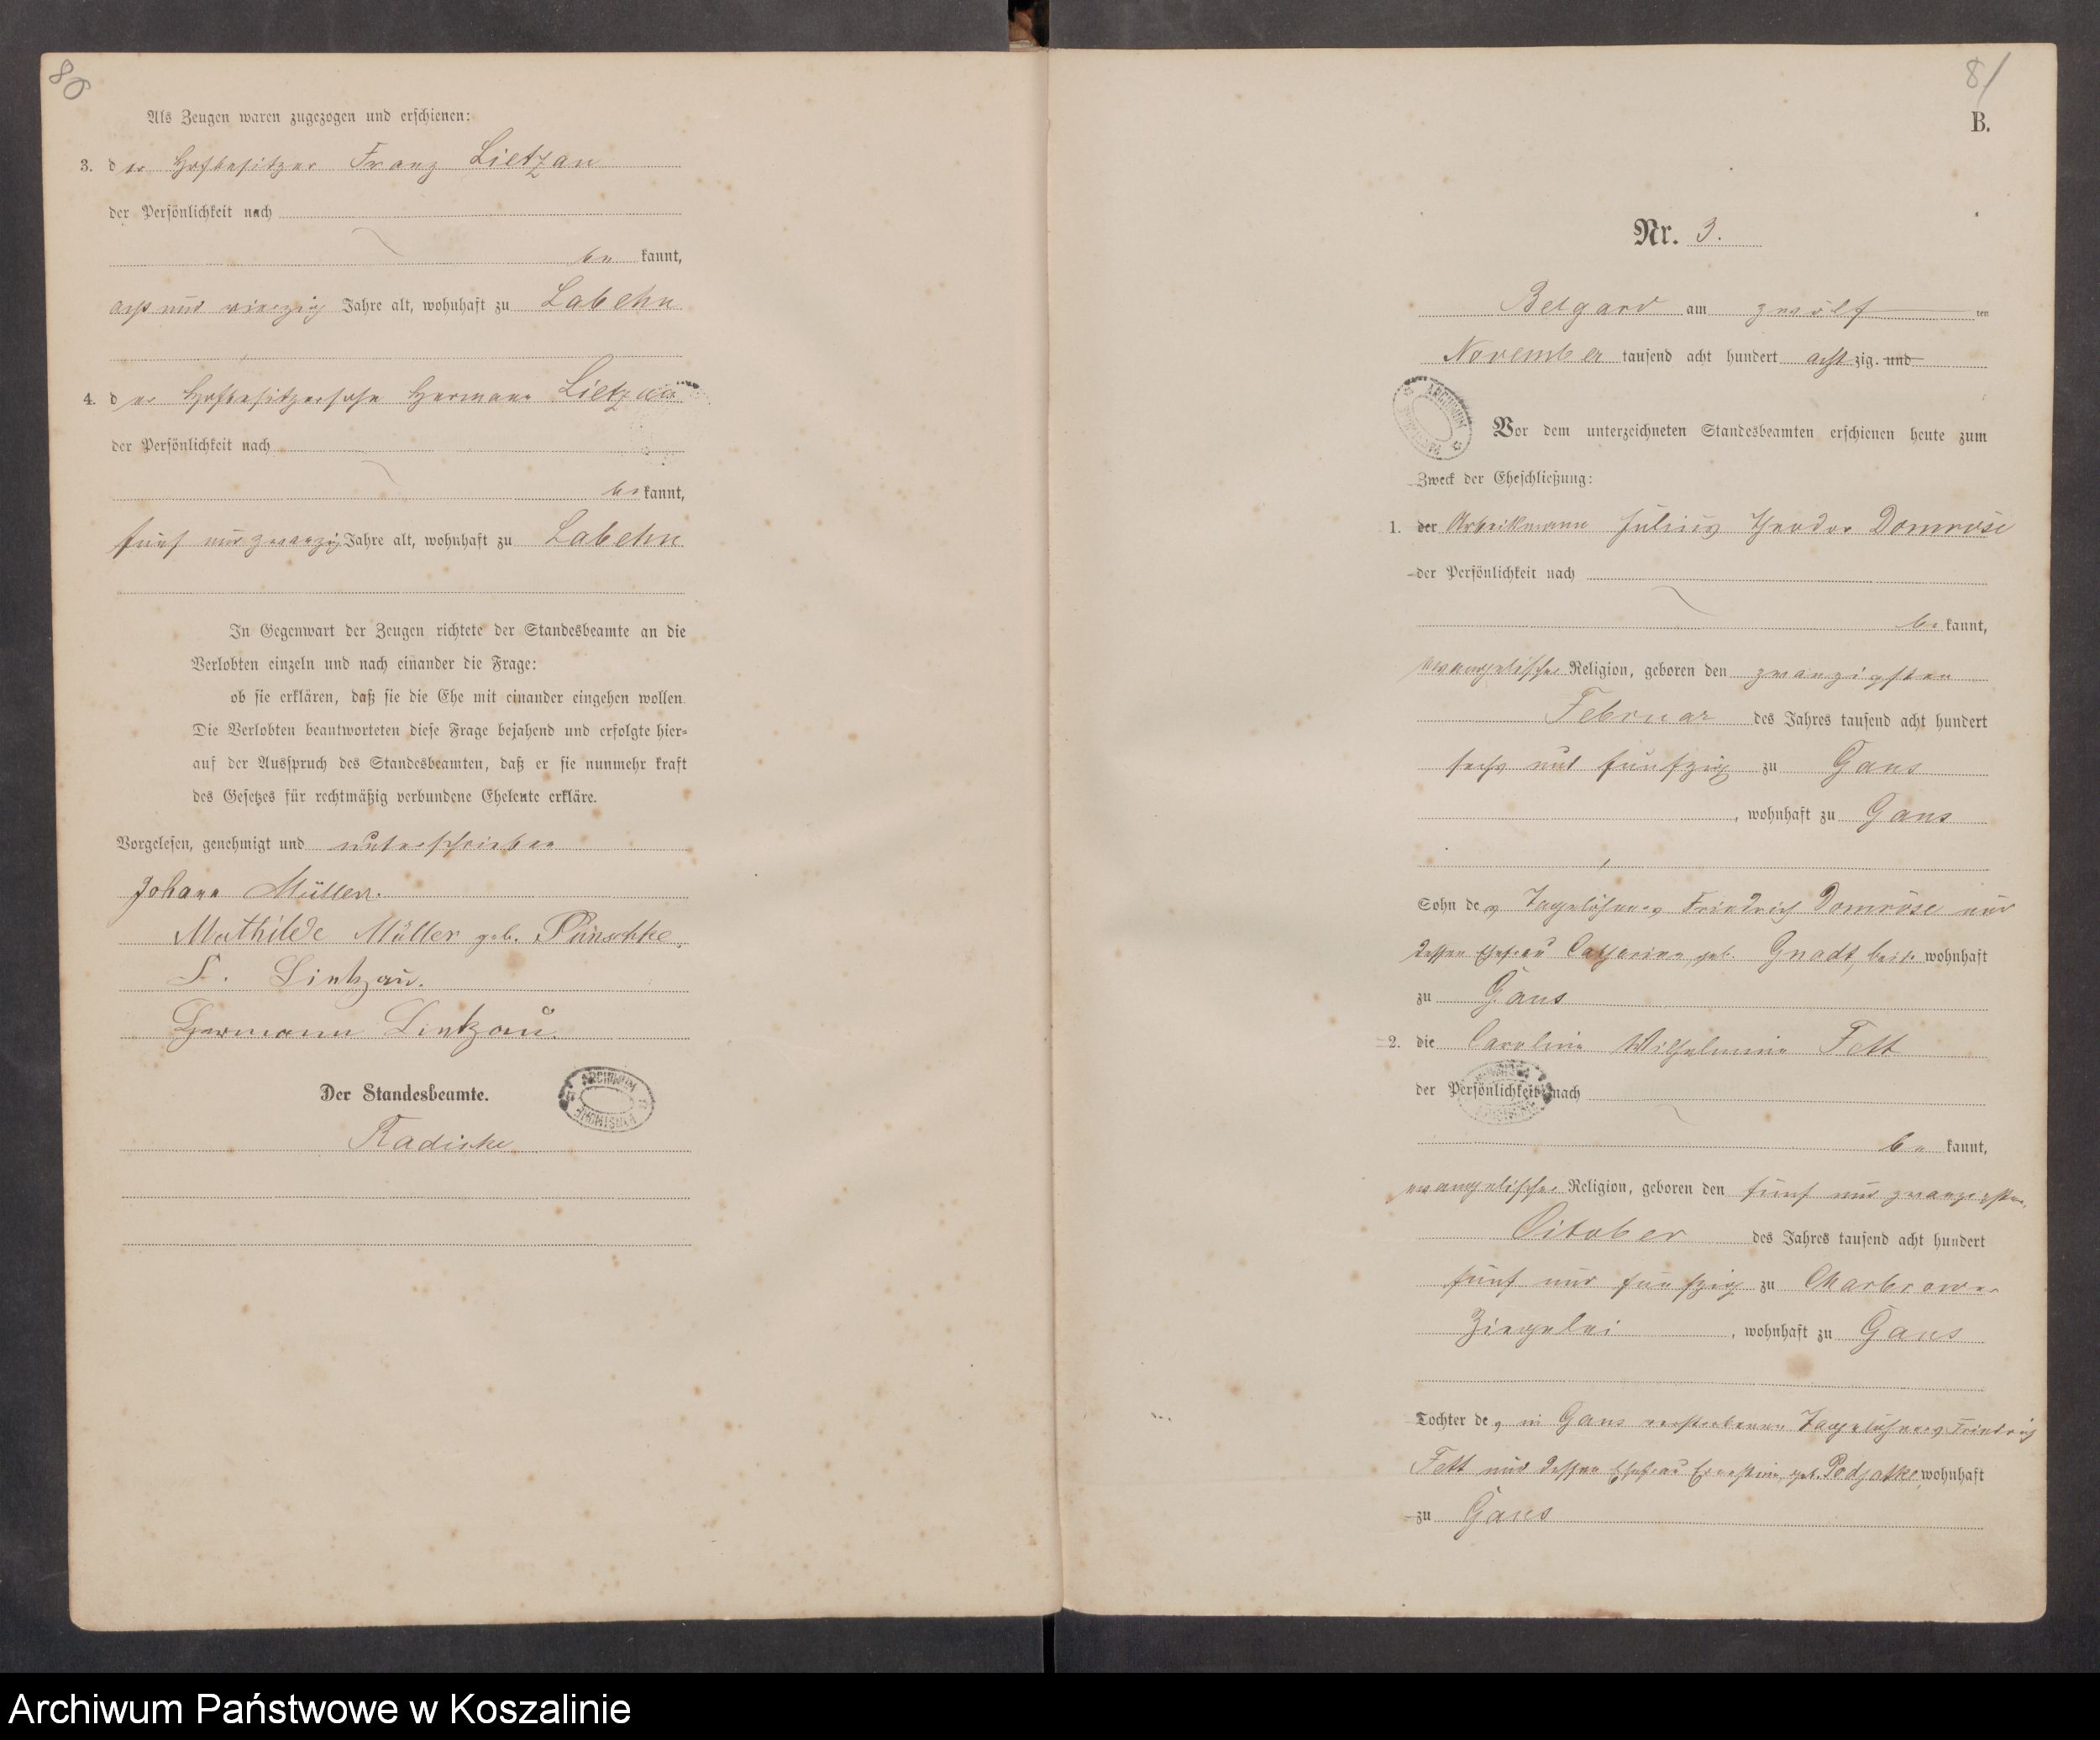 80
Als Zeugen waren zugezogen und erschienen:
3. der Hofbesitzer Franz Lietzau
der Persönlichkeit nach
be kannt,
acht und vierzig Jahre alt, wohnhaft zu Labehn
4. der Hofbesitzersohn Hermann Lietzau
der Persönlichkeit nach
be kannt,
fünf und zwanzig Jahre alt, wohnhaft zu Labehn
In Gegenwart der Zeugen richtete der Standesbeamte an die
Verlobten einzeln und nach einander die Frage:
ob sie erklären, daß sie die Ehe mit einander eingehen wollen.
Die Verlobten beantworteten diese Frage bejahend und erfolgte hier=
auf der Ausspruch des Standesbeamten, daß er sie nunmehr kraft
des Gesetzes für rechtmäßig verbundene Eheleute erkläre.
Vorgelesen, genehmigt und unterschrieben
Johann Müller.
Mathilde Müller geb.
F. Lietzau.
Hermann Lietzau.
Der Standesbeamte.
Radiske
81
B.
Nr. 3.
Belgard am zwölf ten
November tausend acht hundert achtzig. und
Vor dem unterzeichneten Standesbeamten erschienen heute zum
Zweck der Eheschließung:
1. der Arbeitsmann Julius Theodor Domröse
der Persönlichkeit nach
be kannt,
evangelischer Religion, geboren den zwanzigsten
Februar des Jahres tausend acht hundert
sechs und fünfzig zu Gans
, wohnhaft zu Gans
,
Sohn des Tagelöhners Friedrich Domröse und
dessen Ehefrau Catharine geb. Gnadt, beide wohnhaft
zu Gans
2. die Caroline Wilhelmine Fett
der Persönlichkeit nach
be kannt,
evangelischer Religion, geboren den fünf und zwanzigsten
October des Jahres tausend acht hundert
fünf und fünfzig zu Charbrower
Ziegelei , wohnhaft zu Gans
Tochter des in Gans verstorbenen Tagelöhners Friedrich
Fett und dessen Ehefrau Ernestine geb. Podjatke, wohnhaft
zu Gans
Archiwum Państwowe w Koszalinie